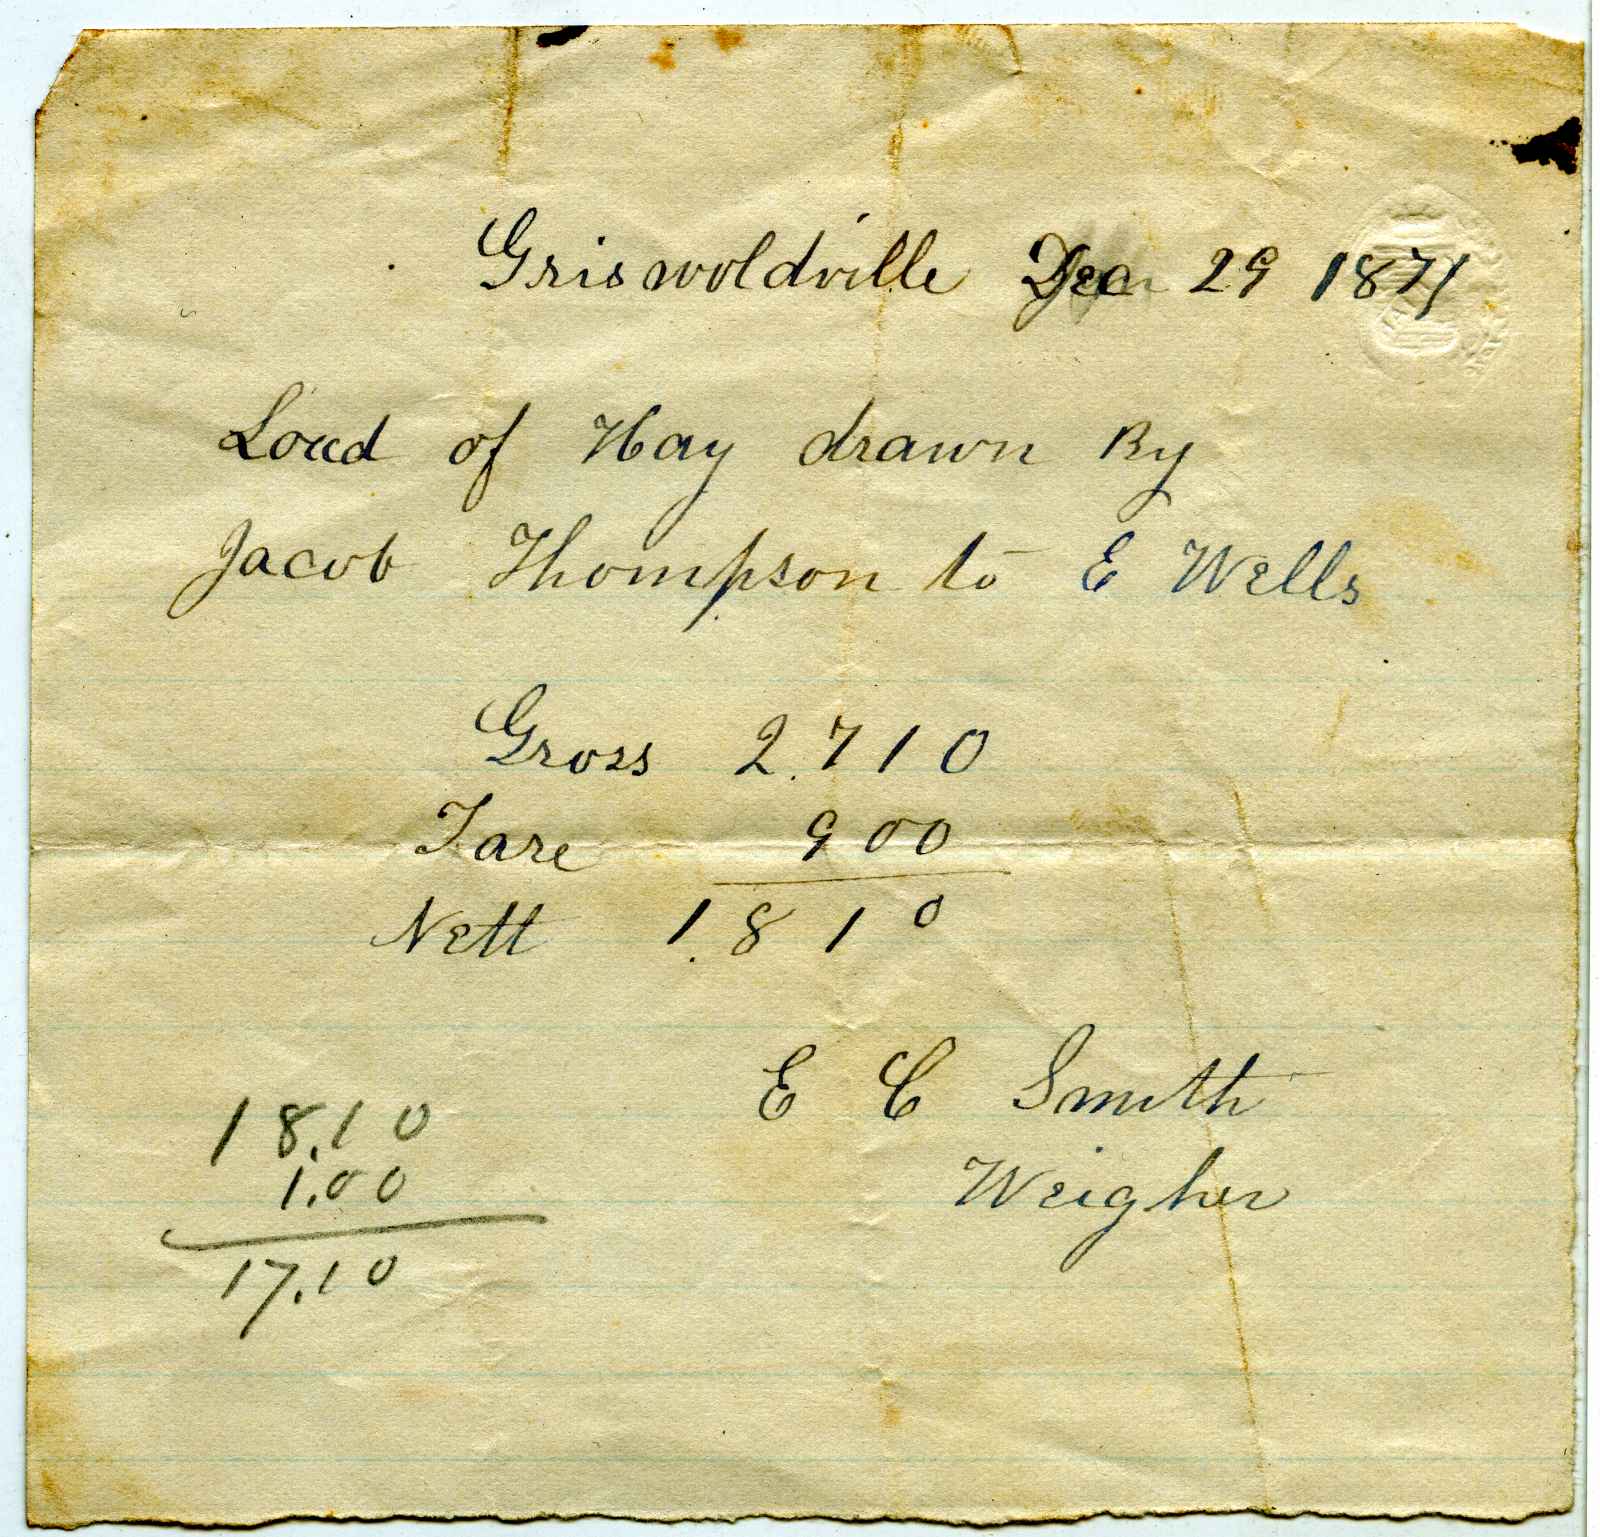 Griswoldville Dec 29 1871
Load of Hay drawn By
Jacob Thompson to E Wells
Gross 2.710
Tare 900
Nett 1.810
E C Smith
Weigher
18.10
1.00
17.10